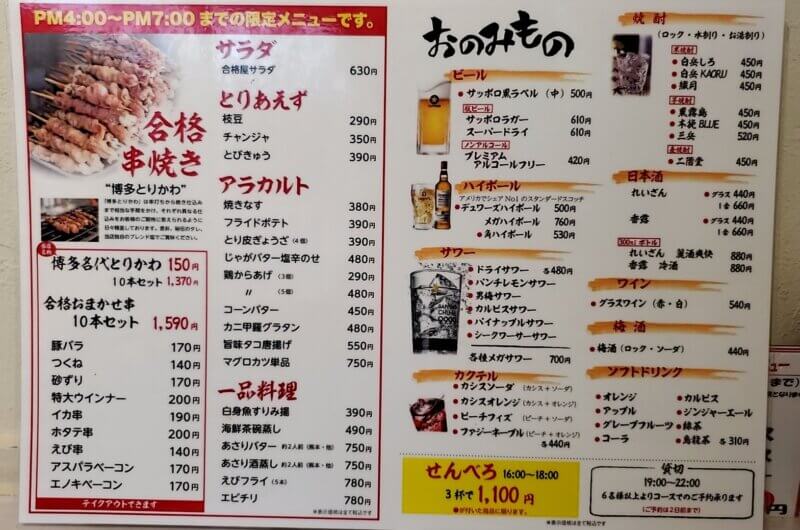 PM4:00～PM7:00 までの限定メニューです。
合格
串焼き
“博多とりかわ”
博多名代とりかわ 150円
10本セット 1,370円
合格おまかせ串
10本セット 1,590円
豚バラ 170円
つくね 140円
砂ずり 170円
特大ウインナー 200円
イカ串 190円
ホタテ串 200円
えび串 140円
アスパラベーコン 170円
エノキベーコン 170円
テイクアウトできます
サラダ
合格屋サラダ 630円
とりあえず
枝豆 290円
チャンジャ 350円
とびきゅう 390円
アラカルト
焼きなす 380円
フライドポテト 390円
とり皮ぎょうざ（4個） 390円
じゃがバター塩辛のせ 480円
鶏からあげ（3個） 290円
〃（5個） 480円
コーンバター 450円
カニ甲羅グラタン 480円
旨味タコ唐揚げ 550円
マグロカツ単品 750円
一品料理
白身魚すりみ揚 390円
海鮮茶碗蒸し 490円
あさりバター 約2人前（熊本・他） 750円
あさり酒蒸し 約2人前（熊本・他） 750円
えびフライ（5本） 780円
エビチリ 780円
※表示価格は全て税込です
おのみもの
ビール
●サッポロ黒ラベル（中） 500円
瓶ビール
サッポロラガー 610円
スーパードライ 610円
ノンアルコール
プレミアム
アルコールフリー 420円
ハイボール
アメリカでシェア No.1 のスタンダードスコッチ
●デュワーズハイボール 500円
メガハイボール 760円
●角ハイボール 530円
サワー
●ドライサワー 各480円
●パンチレモンサワー
●男梅サワー
●カルピスサワー
●パイナップルサワー
●シークワーサーサワー
各種メガサワー 700円
カクテル
●カシスソーダ（カシス＋ソーダ）
●カシスオレンジ（カシス＋オレンジ）
●ピーチフィズ（ピーチ＋ソーダ）
●ファジーネーブル（ピーチ＋オレンジ）
各440円
せんべろ 16:00～18:00
3杯で1,100円
●が付いた商品に限ります。
焼酎
（ロック・水割り・お湯割り）
米焼酎
●白岳しろ 450円
●白岳 KAORU 450円
●繊月 450円
芋焼酎
●黒霧島 450円
●木挽 BLUE 450円
●三岳 520円
麦焼酎
●二階堂 450円
日本酒
れいざん ●グラス 440円
1合 660円
香露 ●グラス 440円
1合 660円
300mlボトル
れいざん 麗酒爽快 880円
香露 冷酒 880円
ワイン
●グラスワイン（赤・白） 540円
梅酒
●梅酒（ロック・ソーダ） 440円
ソフトドリンク
●オレンジ ●カルピス
●アップル ●ジンジャーエール
●グレープフルーツ ●緑茶
●コーラ ●烏龍茶 各310円
貸切
19:00～22:00
6名様以上よりコースでのご予約承ります
（ご予約は2日前まで）
※表示価格は全て税込です